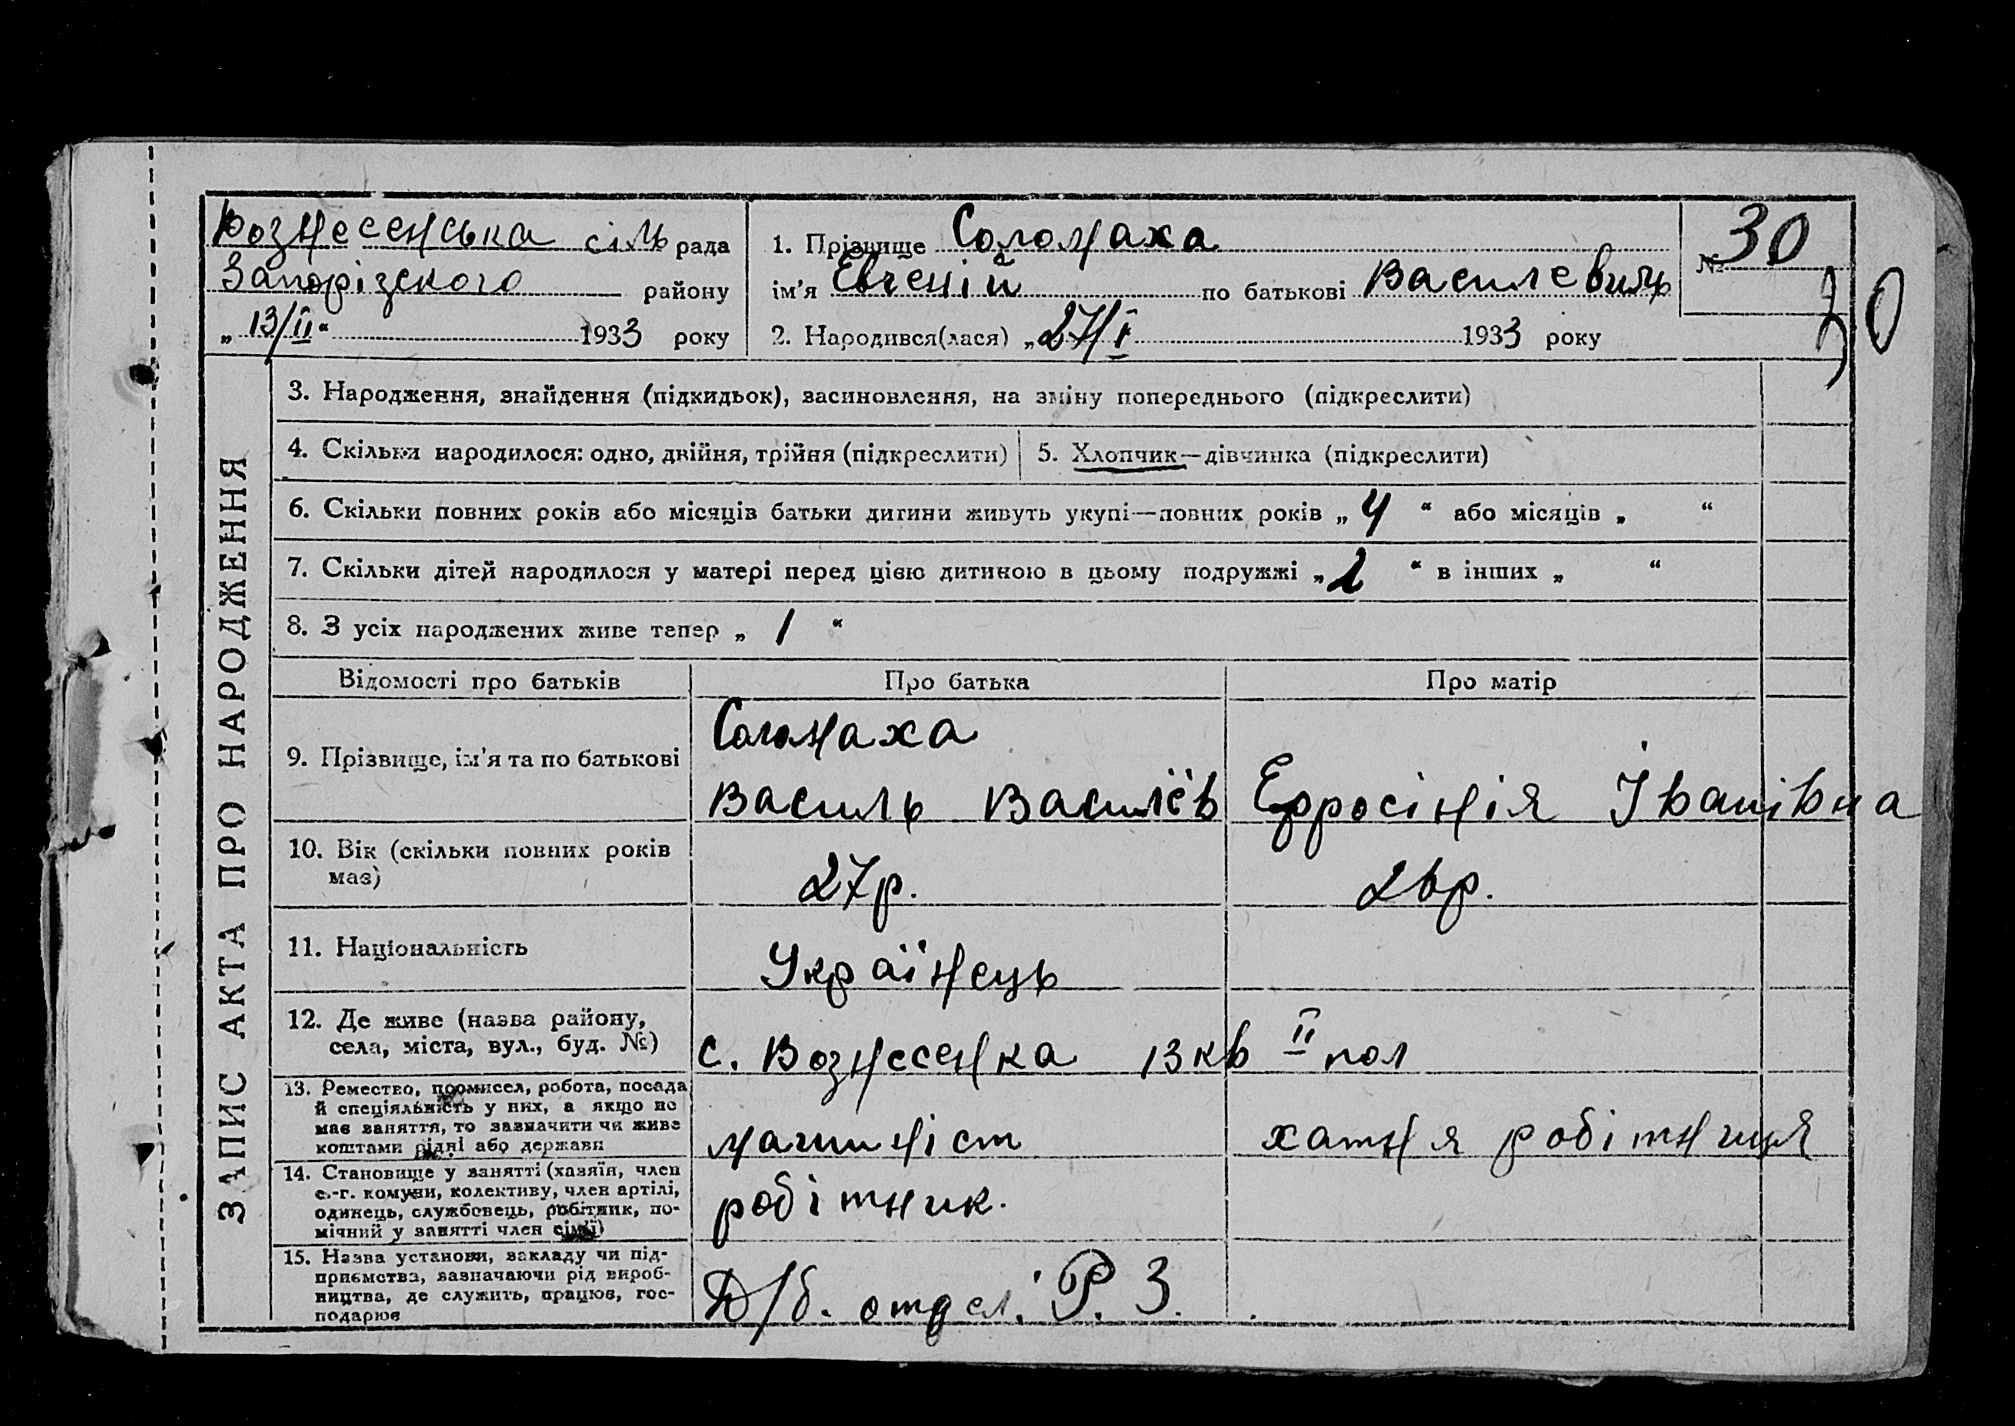 Вознесенська сіль рада
Запорізского району
„13/II“ 1933 року
1. Прізвище Соломаха
ім'я Евгеній по батькові Василевичь
2. Народився(лася) „27/I 1933 року
№ 30
30
ЗАПИС АКТА ПРО НАРОДЖЕННЯ
3. Народження, знайдення (підкидьок), засиновлення, на зміну попереднього (підкреслити)
4. Скільки народилося: одно, двійня, трійня (підкреслити)
5. Хлопчик—дівчинка (підкреслити)
6. Скільки повних років або місяців батьки дитини живуть укупі—повних років „ 4 “ або місяців „ “
7. Скільки дітей народилося у матері перед цією дитиною в цьому подружжі „ 2 “ в інших „ “
8. З усіх народжених живе тепер „ 1 “
Відомості про батьків Про батька Про матір
9. Прізвище, ім'я та по батькові
Соломаха
Василь Василїв Ефросінія Іванівна
10. Вік (скільки повних років
має)
27р. 26р.
11. Національність
Українець
12. Де живе (назва району,
села, міста, вул., буд. №)
с. Вознесенка 13 кв II пол
13. Ремество, промисел, робота, посада
й спеціяльність у них, а якщо не
має заняття, то зазначити чи живе
коштами рідні або держави
машиніст хатня робітниця
14. Становище у занятті (хазяїн, член
с.-г. комуни, колективу, член артілі,
одинець, службовець, робітник, по-
мічний у занятті член сімї)
робітник.
15. Назва установи, закладу чи під-
приємства, зазначаючи рід вироб-
ництва, де служить, працює, гос-
подарює
Д/б. отдел. Р. З.